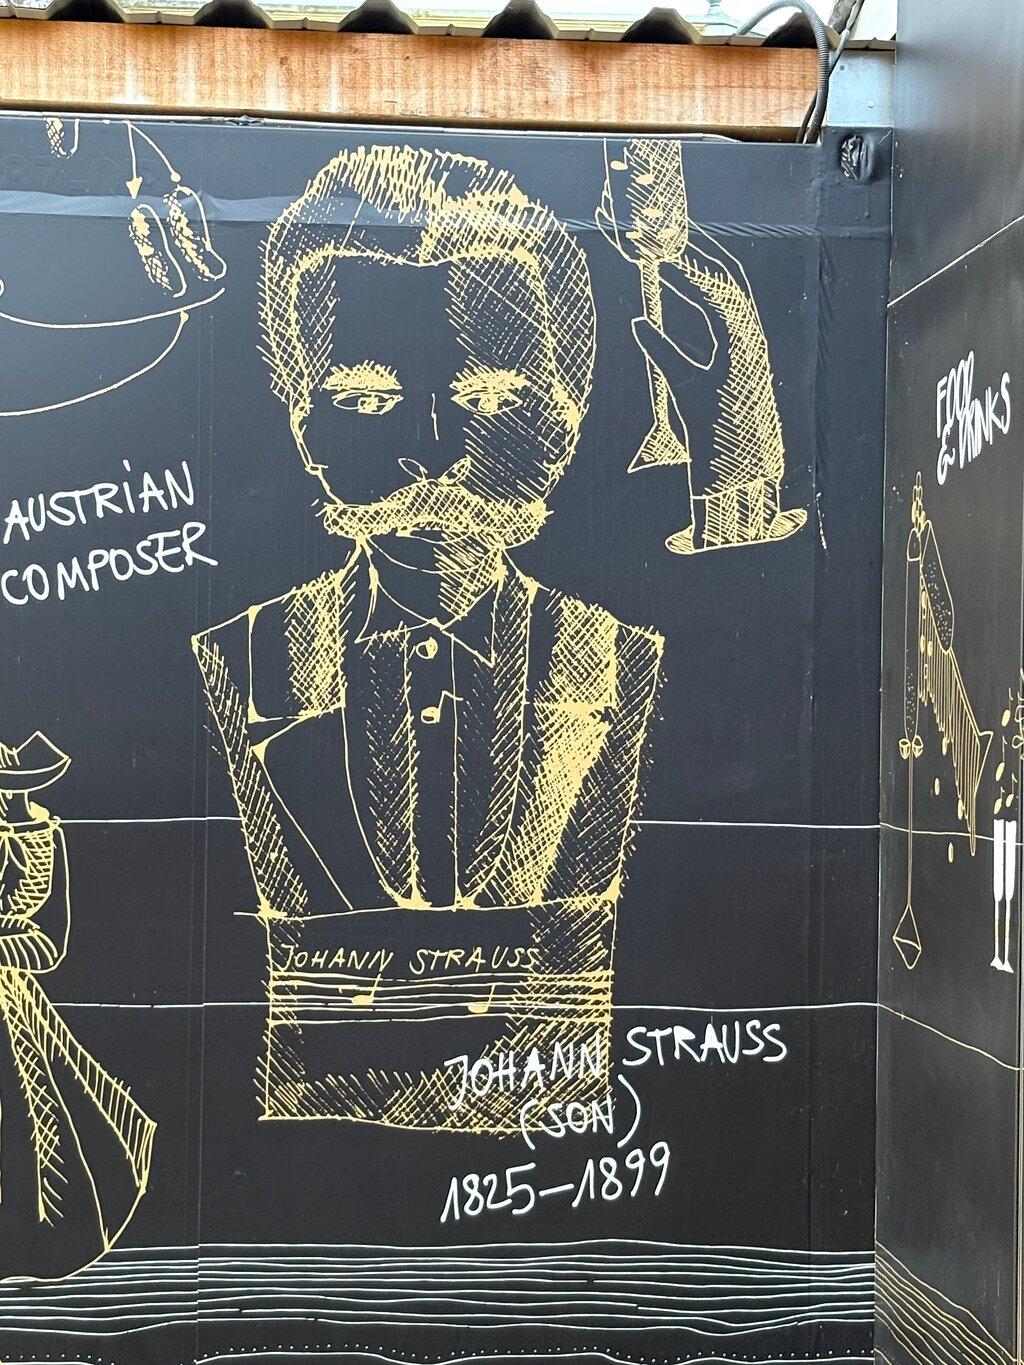 AUSTRIAN
COMPOSER
JOHANN STRAUSS
JOHANN STRAUSS
(SON)
1825–1899
FOOD
& DRINKS